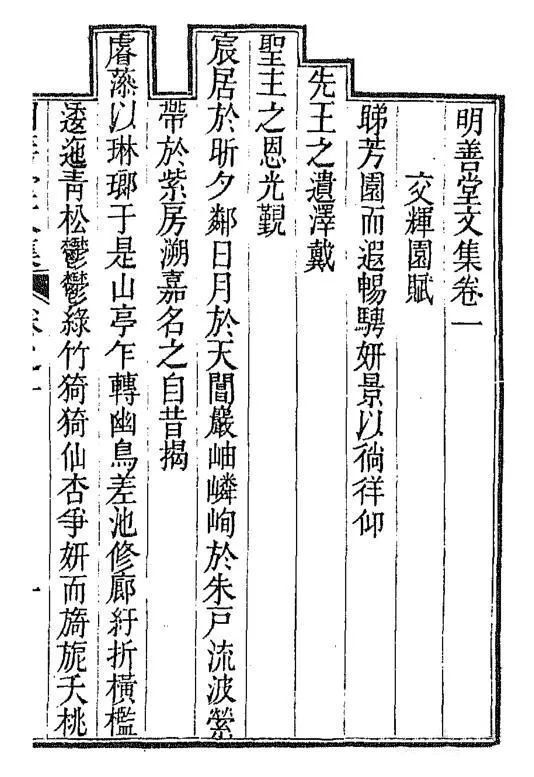 明善堂文集卷一
交輝園賦
睇芳園而遐暢騁妍景以徜徉仰
先王之遺澤戴
聖主之恩光覲
宸居於昕夕鄰日月於天閶巖岫嶙峋於朱戶流波縈
帶於紫房溯嘉名之自昔揭
睿藻以琳瑯于是山亭乍轉幽鳥差池修廊紆折橫檻
逶迤青松鬱鬱綠竹猗猗仙杏爭妍而旖旎夭桃